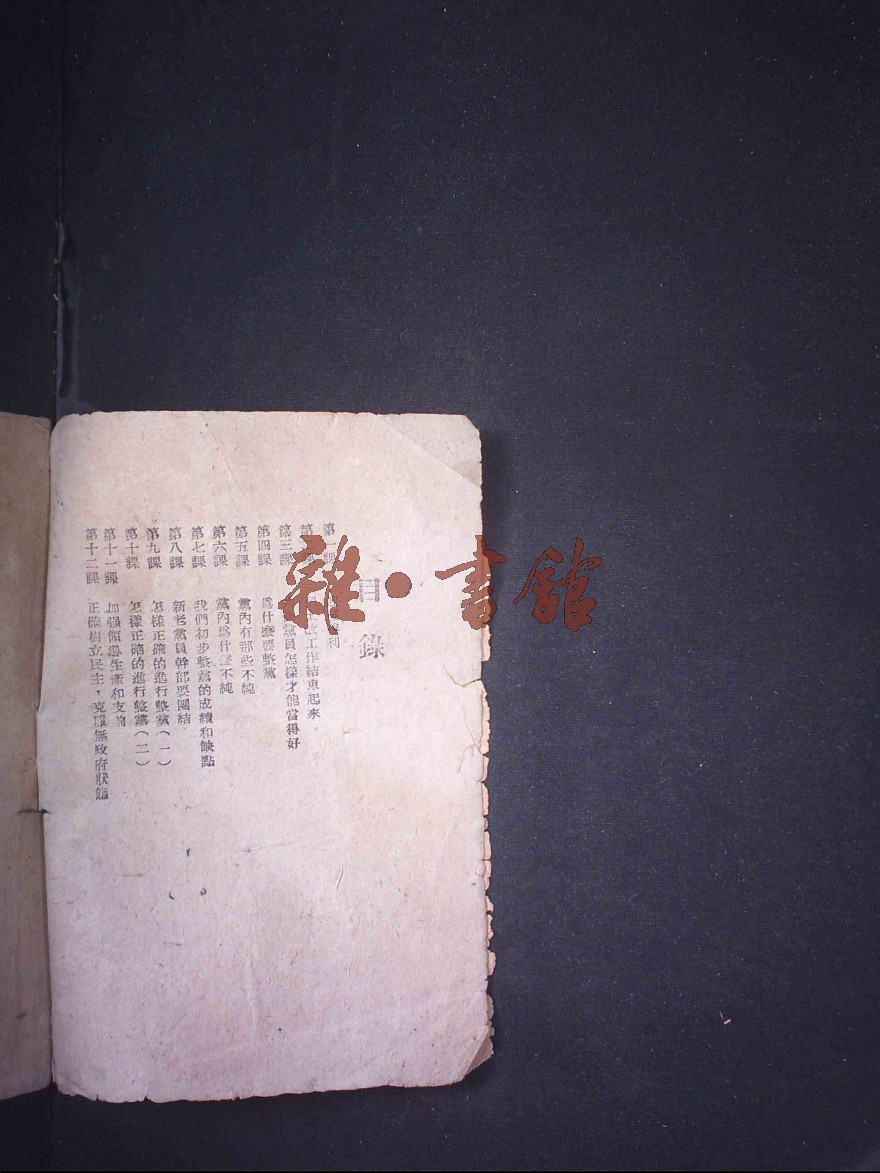 目錄
第一課 利
第 工作結束起來
第三課 黨員怎樣才能當得好
第四課 爲什麼要整黨
第五課 黨內有那些不純
第六課 黨內爲什麼不純
第七課 我們初步整黨的成績和缺點
第八課 新老黨員幹部要團結
第九課 怎樣正確的進行整黨(一)
第十課 怎樣正確的進行整黨(二)
第十一課 加強領導生產和支前
第十二課 正確樹立民主,克服無政府狀態
雜·書館